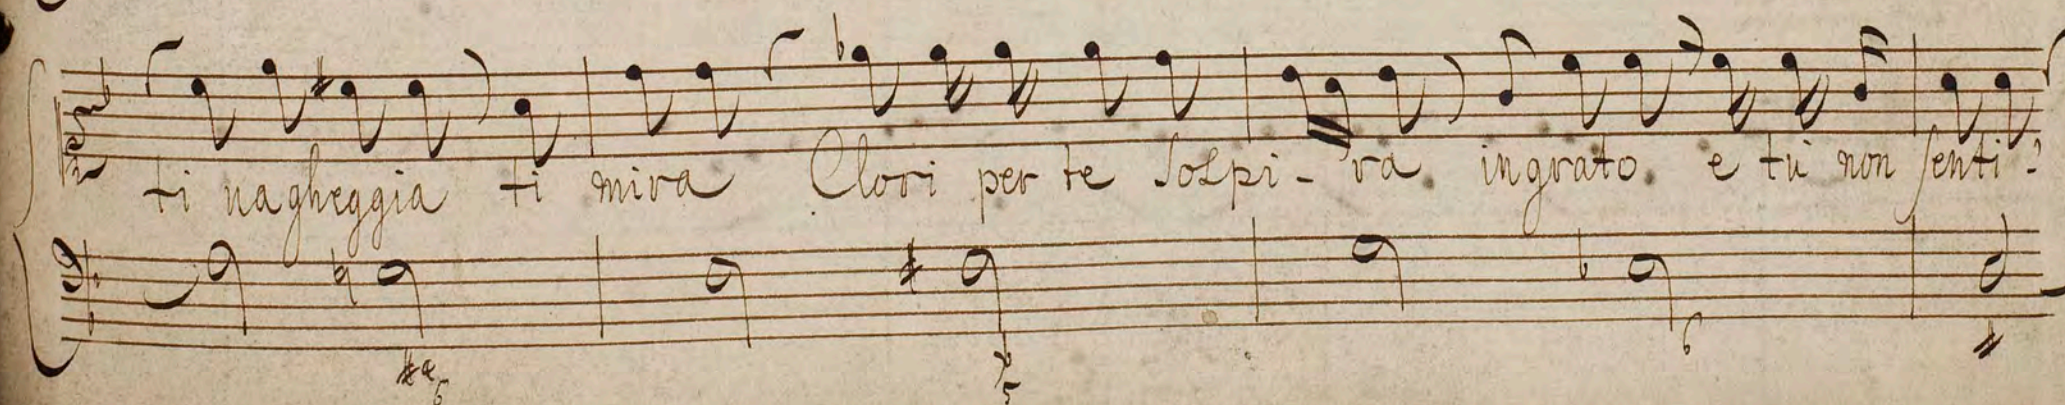 ti vagheggia ti mira Clori per te sospi-ra ingrato e tu non senti?
#4 7 6 #
6 5